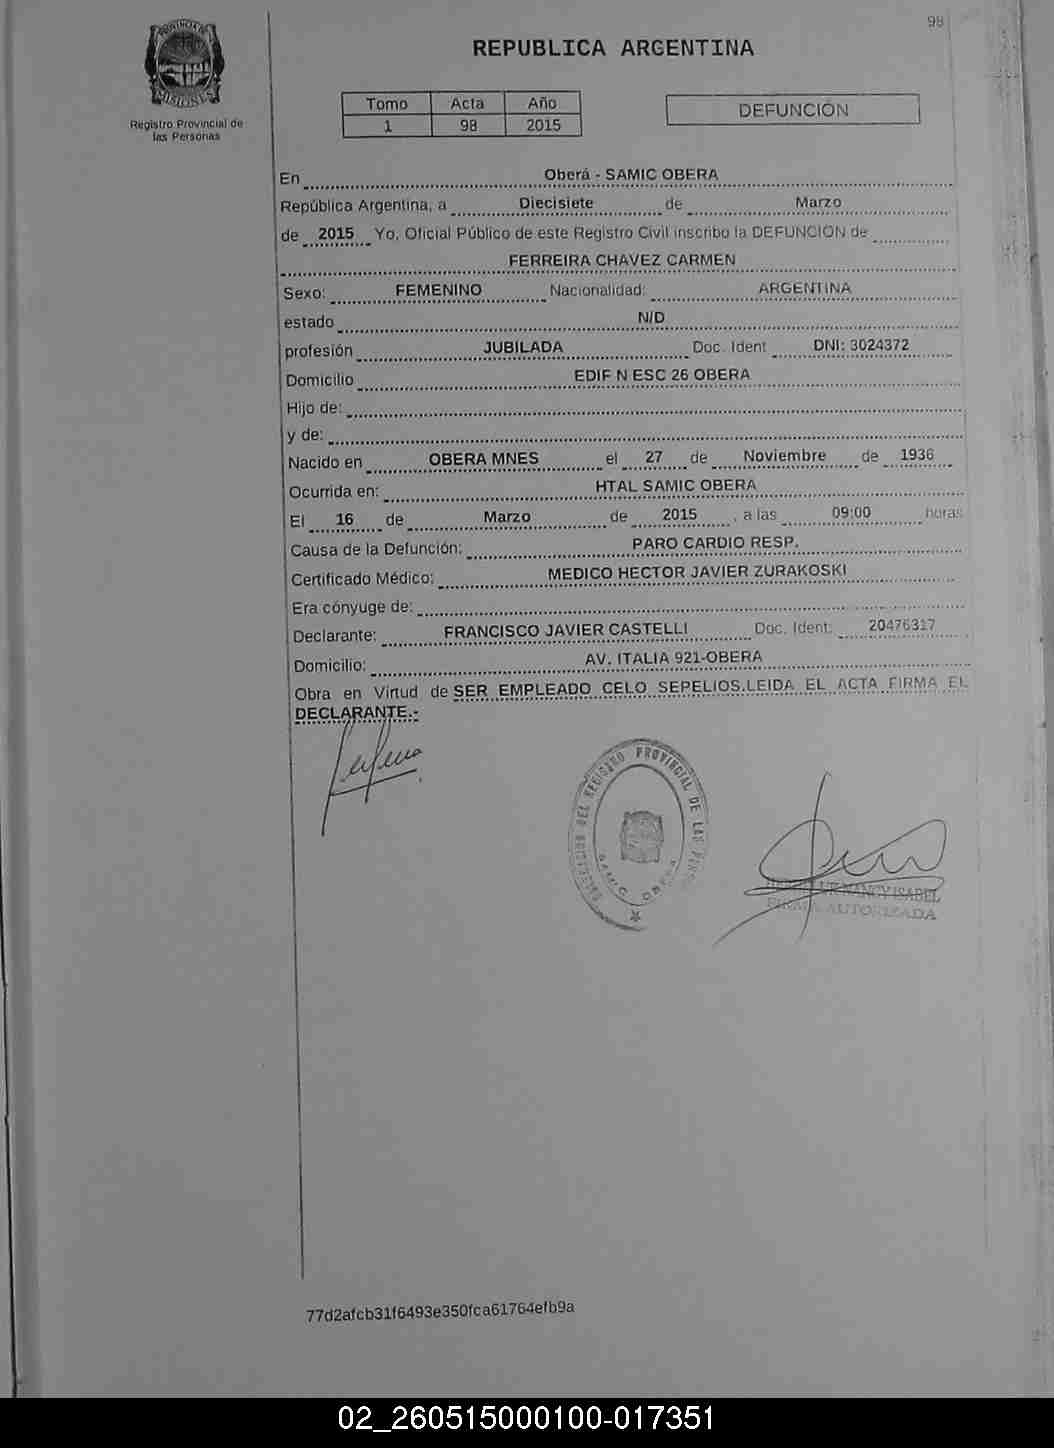 98
PROVINCIA DE
MISIONES
Registro Provincial de
las Personas
REPUBLICA ARGENTINA
Tomo Acta Año
1 98 2015
DEFUNCIÓN
En Oberá - SAMIC OBERA
República Argentina, a Diecisiete de Marzo
de 2015 Yo, Oficial Público de este Registro Civil inscribo la DEFUNCION de
FERREIRA CHAVEZ CARMEN
Sexo: FEMENINO Nacionalidad: ARGENTINA
estado N/D
profesión JUBILADA Doc. Ident DNI: 3024372
Domicilio EDIF N ESC 26 OBERA
Hijo de:
y de:
Nacido en OBERA MNES el 27 de Noviembre de 1936
Ocurrida en: HTAL SAMIC OBERA
El 16 de Marzo de 2015 , a las 09:00 horas
Causa de la Defunción: PARO CARDIO RESP.
Certificado Médico: MEDICO HECTOR JAVIER ZURAKOSKI
Era cónyuge de:
Declarante: FRANCISCO JAVIER CASTELLI Doc. Ident: 20476317
Domicilio: AV. ITALIA 921-OBERA
Obra en Virtud de SER EMPLEADO CELO SEPELIOS.LEIDA EL ACTA FIRMA EL
DECLARANTE.-
DEL REGISTRO PROVINCIAL DE LAS
SAMIC OBERA
NANCY ISABEL
FIRMA AUTORIZADA
77d2afcb31f6493e350fca61764efb9a
02_260515000100-017351